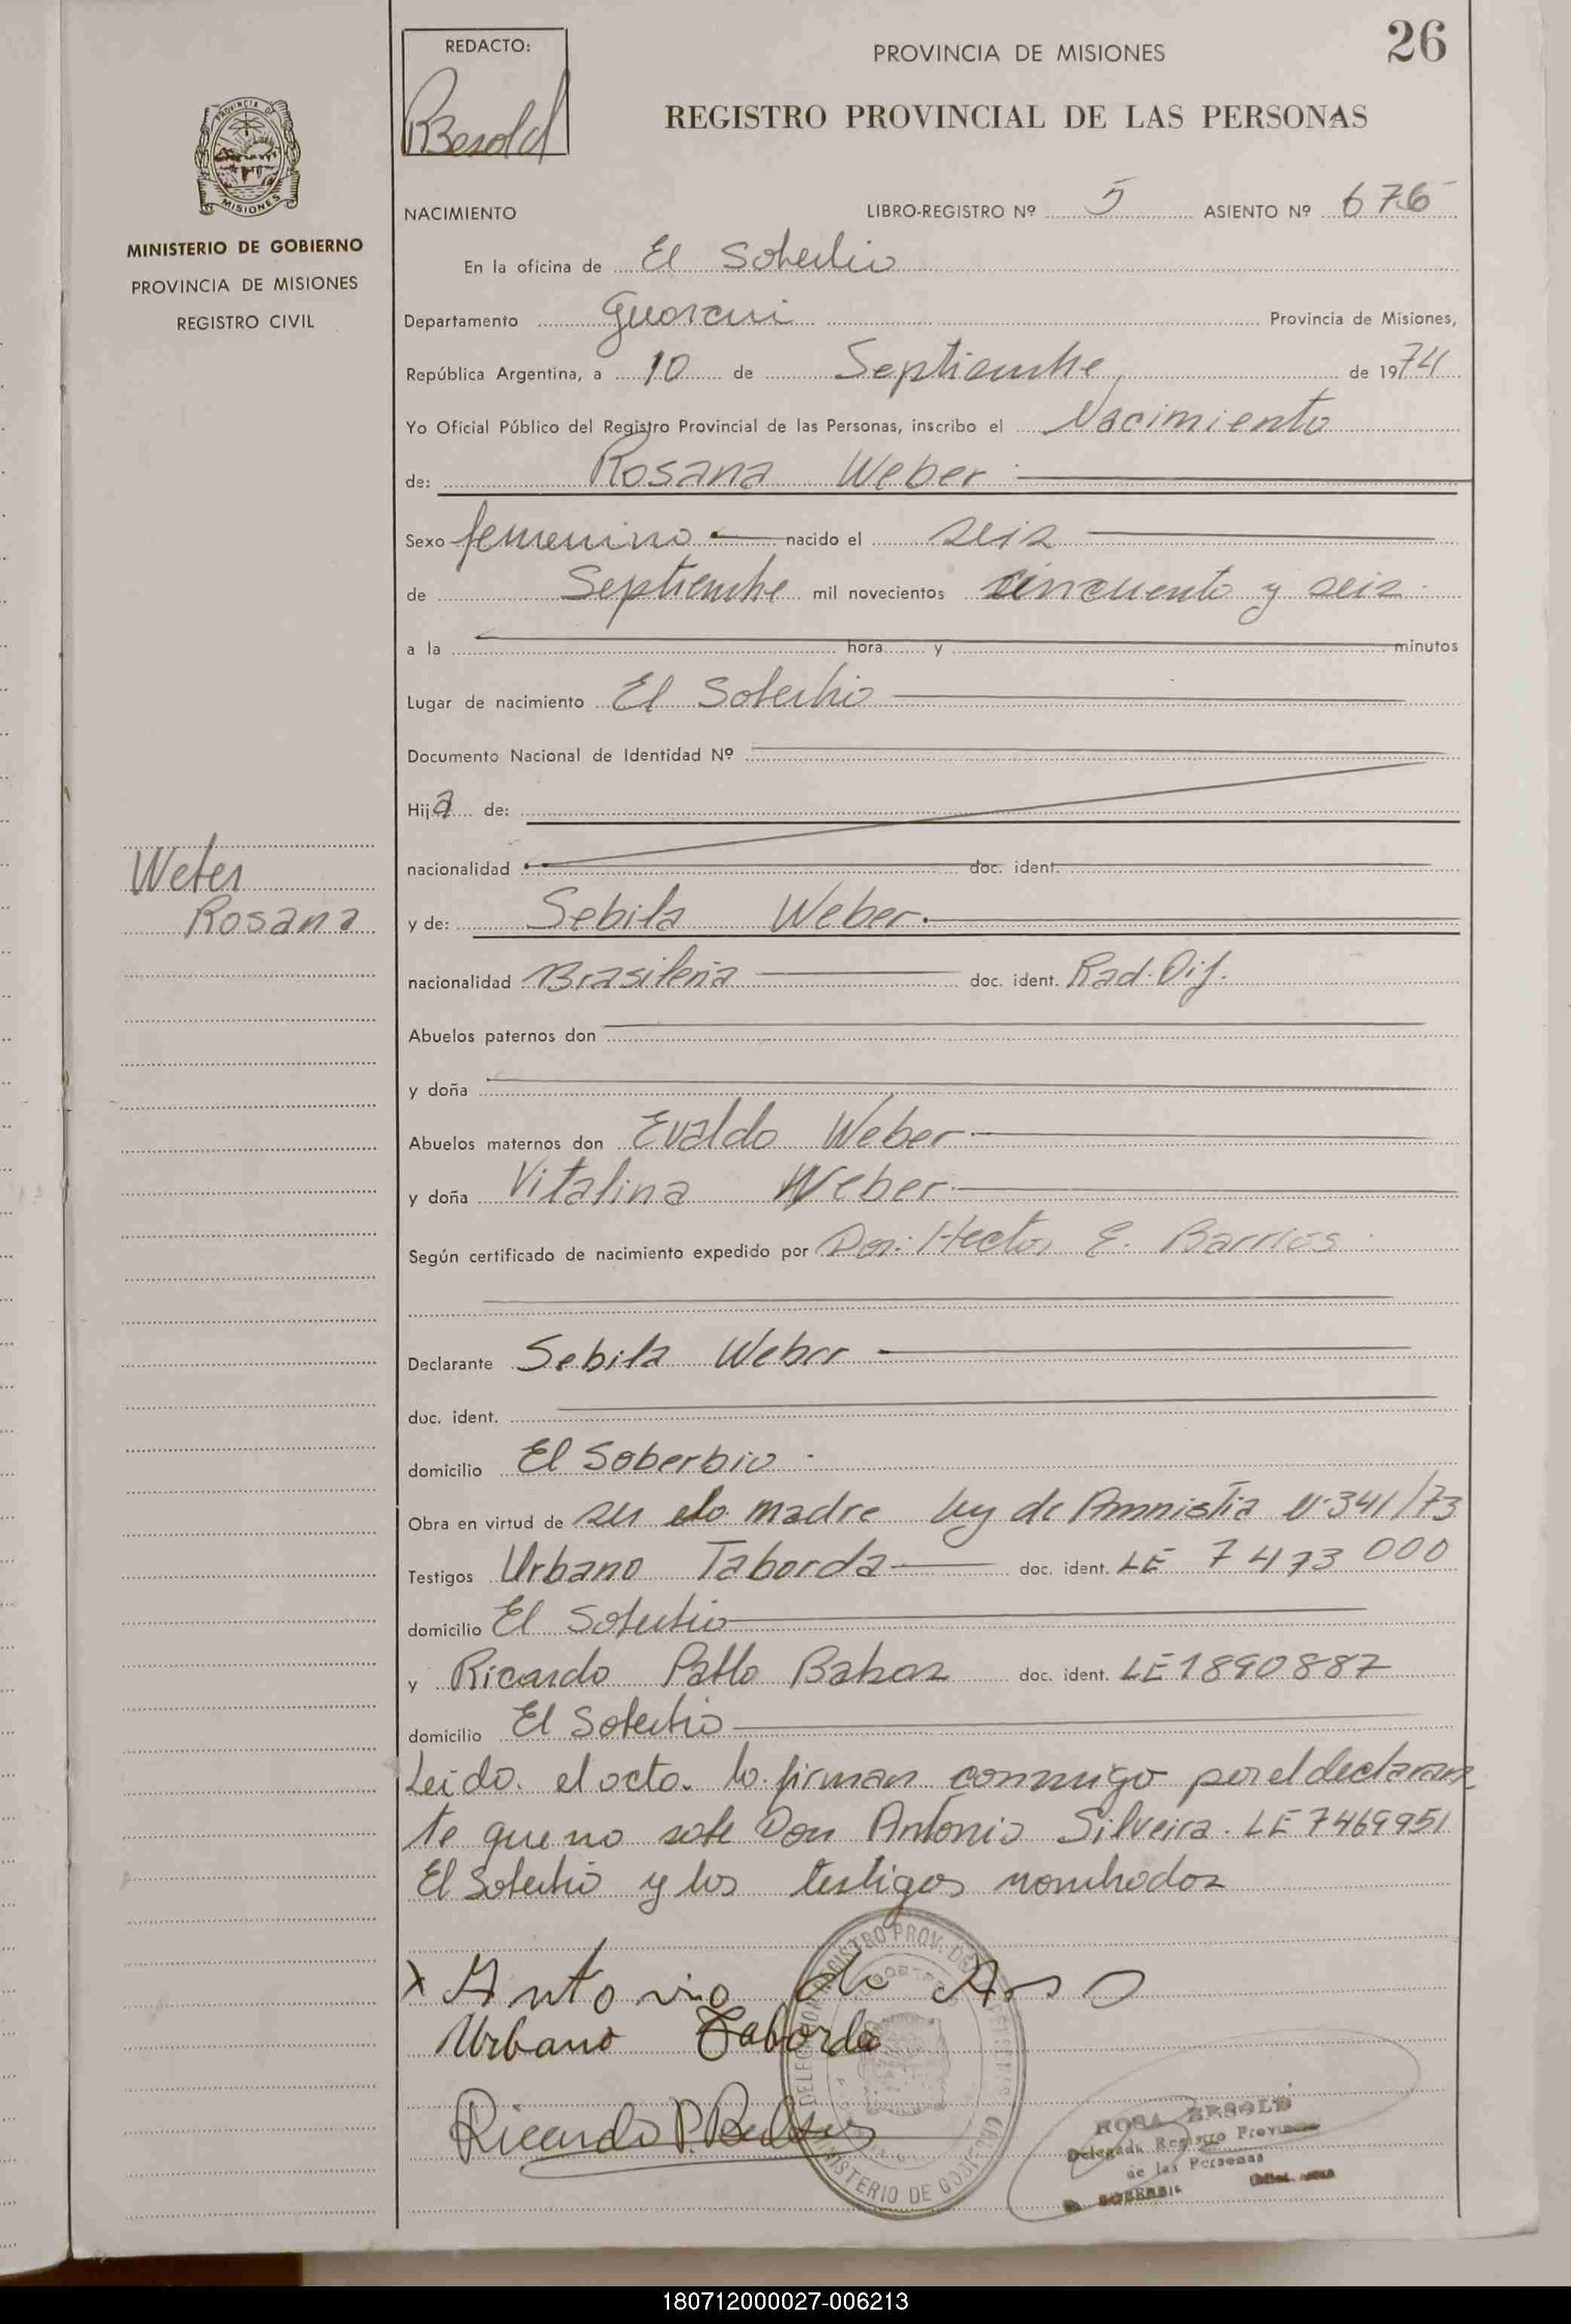 REDACTO:
Besold
PROVINCIA DE MISIONES
26
REGISTRO PROVINCIAL DE LAS PERSONAS
PROVINCIA DE MISIONES
MINISTERIO DE GOBIERNO
PROVINCIA DE MISIONES
REGISTRO CIVIL
NACIMIENTO LIBRO-REGISTRO Nº 5 ASIENTO Nº 676
En la oficina de El Soberbio
Departamento Guarani Provincia de Misiones,
República Argentina, a 10 de Septiembre de 1974
Yo Oficial Público del Registro Provincial de las Personas, inscribo el Nacimiento
de: Rosana Weber
Sexo femenino nacido el seis
de Septiembre mil novecientos cincuenta y seis
a la hora y minutos
Lugar de nacimiento El Soberbio
Documento Nacional de Identidad Nº
Hija de:
nacionalidad doc. ident.
Weber
Rosana
y de: Sebila Weber.
nacionalidad Brasileña doc. ident. Rad. Dif.
Abuelos paternos don
y doña
Abuelos maternos don Evaldo Weber
y doña Vitalina Weber
Según certificado de nacimiento expedido por Don: Hector E. Barrios
Declarante Sebila Weber
doc. ident.
domicilio El Soberbio
Obra en virtud de su madre Ley de Amnistia Nº 341/73
Testigos Urbano Taborda doc. ident. LE 7473000
domicilio El Soberbio
y Ricardo Pablo doc. ident. LE 1890887
domicilio El Soberbio
Leido el acta lo firman conmigo por el declaran
te que no sabe Don Antonio Silveira. LE 7469951
El Soberbio y los testigos nombrados
x Antonio de
Urbano Taborda
Ricardo P.
DELEGACION REGISTRO PROV. DE
MINISTERIO DE GOBIERNO
ROSA BESOLD
Delegada Registro Provincial
de las Personas
EL SOBERBIO
180712000027-006213